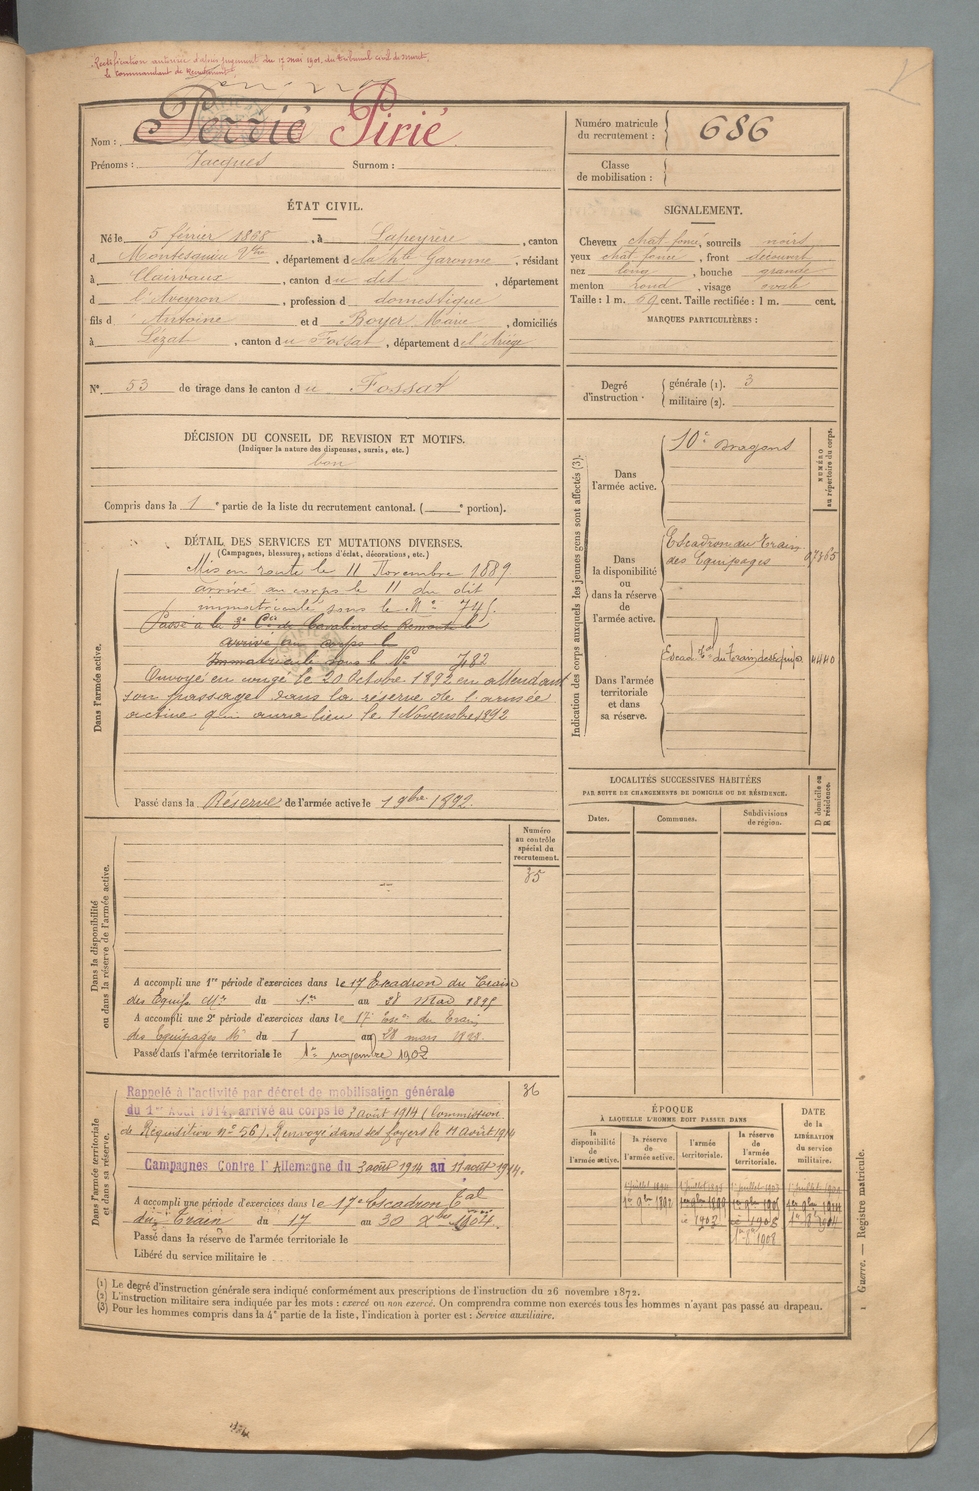 Rectification autorisée d'après jugement du 17 mai 1901, du tribunal civil de Muret.
le Commandant de Recrutement
Nom : Perrié Pirié
Prénoms : Jacques Surnom :
Numéro matricule du recrutement : 686
Classe de mobilisation :
ÉTAT CIVIL.
Né le 5 février 1868, à Lapeyrère, canton
d Montesquieu Vtre, département de la hte Garonne, résidant
à Clairvaux, canton du dit, département
d l'Aveyron, profession d domestique
fils d' Antoine et d Boyer Marie, domiciliés
à Lézat, canton du Fossat, département de l'Ariège
N° 53 de tirage dans le canton du Fossat
SIGNALEMENT.
Cheveux chat. foncé, sourcils noirs
yeux chat foncé, front découvert
nez long, bouche grande
menton rond, visage ovale
Taille : 1 m. 69 cent. Taille rectifiée : 1 m. cent.
MARQUES PARTICULIÈRES :
Degré d'instruction. générale (1). 3
militaire (2).
DÉCISION DU CONSEIL DE REVISION ET MOTIFS.
(Indiquer la nature des dispenses, sursis, etc.)
bon
Compris dans la 1e partie de la liste du recrutement cantonal. ( e portion).
DÉTAIL DES SERVICES ET MUTATIONS DIVERSES.
(Campagnes, blessures, actions d'éclat, décorations, etc.)
Dans l'armée active.
Mis en route le 11 Novembre 1889
arrivé au corps le 11 du dit
immatriculé sous le N° 745.
Passé à la 3e Cie de Cavaliers de Remonte le
arrivé au corps le
Immatriculé sous le No 782
Envoyé en congé le 20 Octobre 1892 en attendant
son passage dans la réserve de l'armée
active qui aura lieu le 1 Novembre 1892
Passé dans la Réserve de l'armée active le 1 9bre 1892.
Indication des corps auxquels les jeunes gens sont affectés (3).
NUMÉRO au répertoire du corps.
Dans l'armée active.
10e Dragons
Dans la disponibilité ou dans la réserve de l'armée active.
Escadron du Train
des Equipages
Dans l'armée territoriale et dans sa réserve.
Escad. Tal du Train des Equip.
LOCALITÉS SUCCESSIVES HABITÉES
PAR SUITE DE CHANGEMENTS DE DOMICILE OU DE RÉSIDENCE.
D domicile ou R résidence.
Dates. Communes. Subdivisions de région.
Numéro au contrôle spécial du recrutement.
35
Dans la disponibilité ou dans la réserve de l'armée active.
A accompli une 1re période d'exercices dans le 17 Escadron du Train
des Equip. Mres du 1er au 28 Mai 1895
A accompli une 2e période d'exercices dans le 17 Esc. du Train
des Equipages M. du 1 au 28 mars
Passé dans l'armée territoriale le 1er novembre 1902
Dans l'armée territoriale et dans sa réserve.
36
Rappelé à l'activité par décret de mobilisation générale
du 1er Août 1914, arrivé au corps le 3 août 1914 (Commission
de Réquisition n° 56). Renvoyé dans ses foyers le 11 Août 1914
Campagnes Contre l'Allemagne du 3 août 1914 au 11 août 1914.
A accompli une période d'exercices dans le 17e Escadron Tal
du Train du 17 au 30 Xbre 1904.
Passé dans la réserve de l'armée territoriale le
Libéré du service militaire le
ÉPOQUE
À LAQUELLE L'HOMME DOIT PASSER DANS
la disponibilité de l'armée active. la réserve de l'armée active. l'armée territoriale. la réserve de l'armée territoriale.
DATE DE LA LIBÉRATION du service militaire.
(1) Le degré d'instruction générale sera indiqué conformément aux prescriptions de l'instruction du 26 novembre 1872.
(2) L'instruction militaire sera indiquée par les mots : exercé ou non exercé. On comprendra comme non exercés tous les hommes n'ayant pas passé au drapeau.
(3) Pour les hommes compris dans la 4e partie de la liste, l'indication à porter est : Service auxiliaire.
1 Guerre. — Registre matricule.